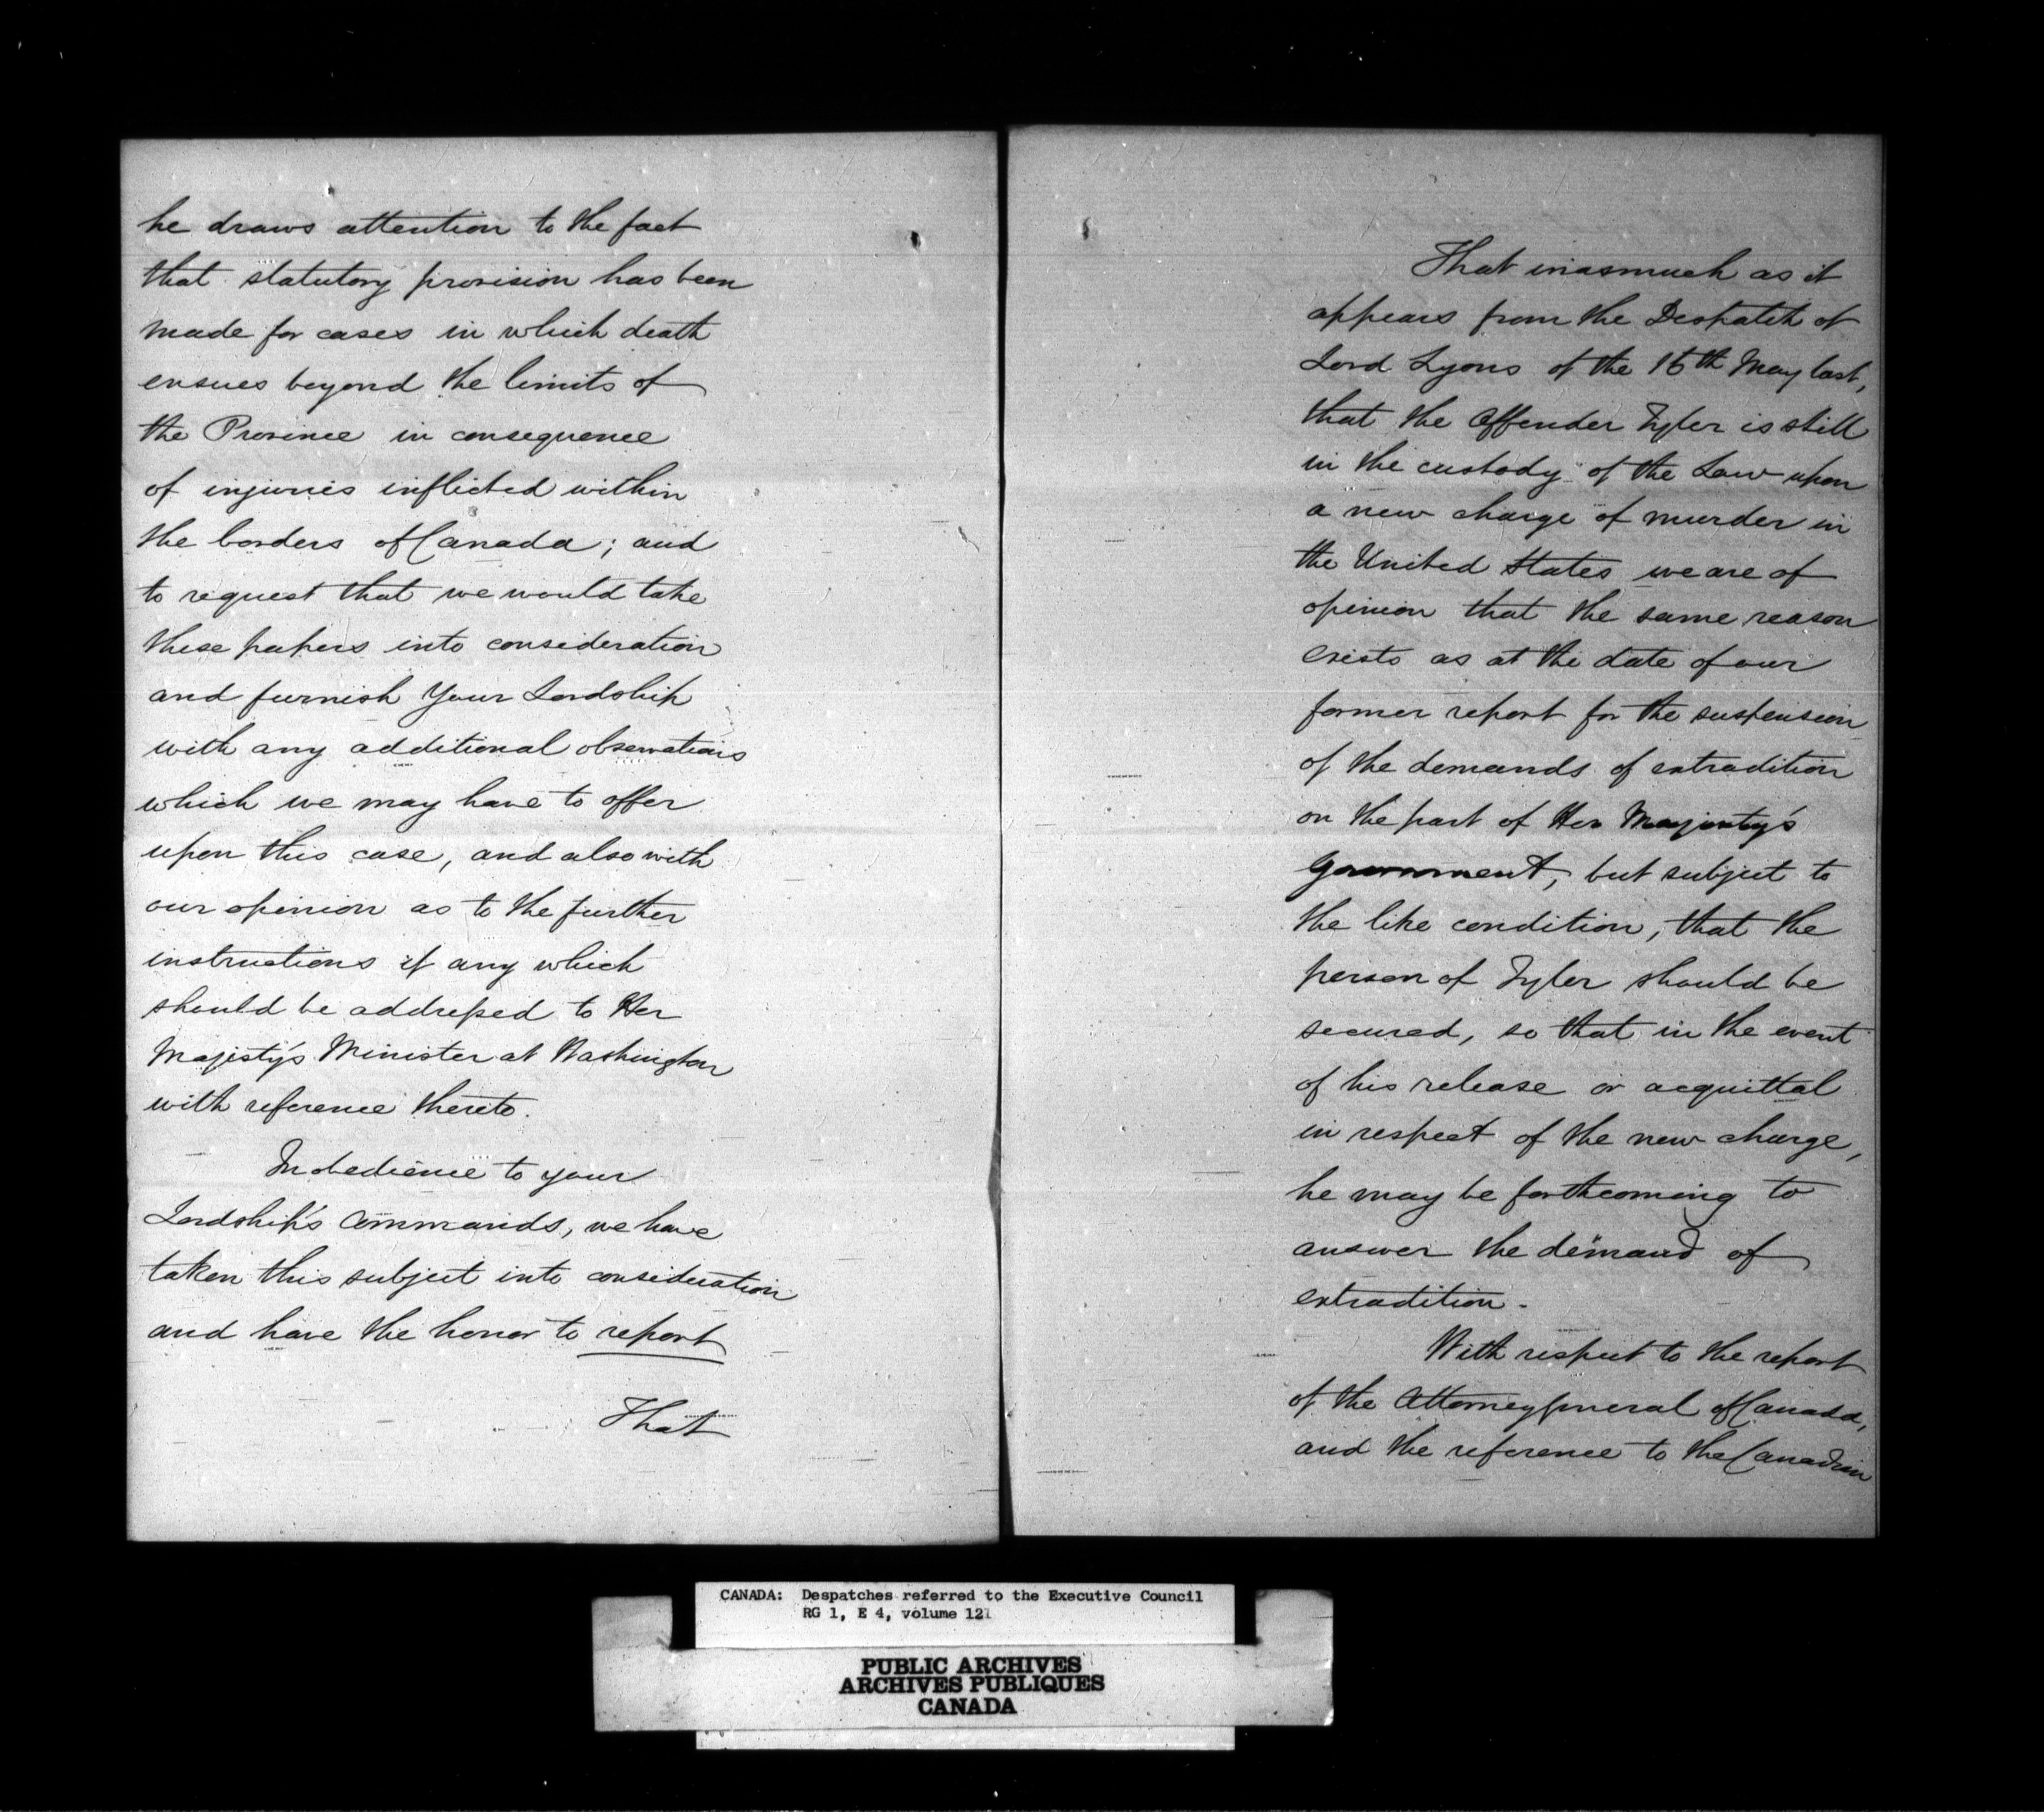 he draws attention to the fact
that statutory provision has been
made for cases in which death
ensues beyond the limits of
the Province in consequence
of injuries inflicted within
the borders of Canada; and
to request that we would take
these papers into consideration
and furnish Your Lordship
with any additional observations
which we may have to offer
upon this case, and also with
our opinion as to the further
instructions if any which
should be addressed to Her
Majesty's Minister at Washington
with reference thereto.
In obedience to your
Lordship's Commands, we have
taken this subject into consideration
and have the honor to report
That
That inasmuch as it
appears from the Despatch of
Lord Lyons of the 15th May last,
that the Offender Tyler is still
in the custody of the Law upon
a new charge of murder in
the United States we are of
opinion that the same reason
exists as at the date of our
former report for the suspension
of the demands of extradition
on the part of Her Majesty's
Government, but subject to
the like condition, that the
person of Tyler should be
secured, so that in the event
of his release or acquittal
in respect of the new charge,
he may be forthcoming to
answer the demand of
extradition.
With respect to the report
of the Attorney General of Canada,
and the reference to the Canadian
CANADA: Despatches referred to the Executive Council
RG 1, E 4, volume 121
PUBLIC ARCHIVES
ARCHIVES PUBLIQUES
CANADA